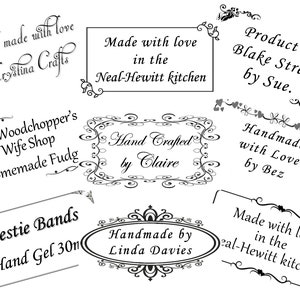 made with love
Crafts
Made with love
in the
Neal-Hewitt kitchen
Product
Blake Str
by Sue.
Woodchopper's
Wife Shop
omemade Fudg
Hand Crafted
by Claire
Handmade
with Love
by Bez
estie Bands
Hand Gel 30m
Handmade by
Linda Davies
Made with lo
in the
eal-Hewitt kitc